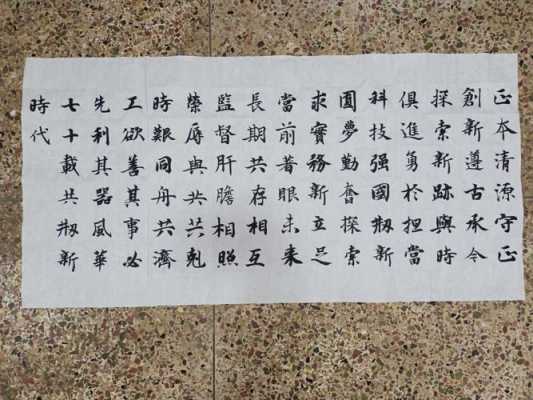 正本清源守正
創新遵古承今
探索新跡與時
俱進勇於担當
科技强國刱新
圓夢勤奮探索
求實務新立足
當前著眼未来
長期共存相互
監督肝膽相照
榮辱與共共尅
時艱同舟共濟
工欲善其事必
先利其器風華
七十載共刱新
時代